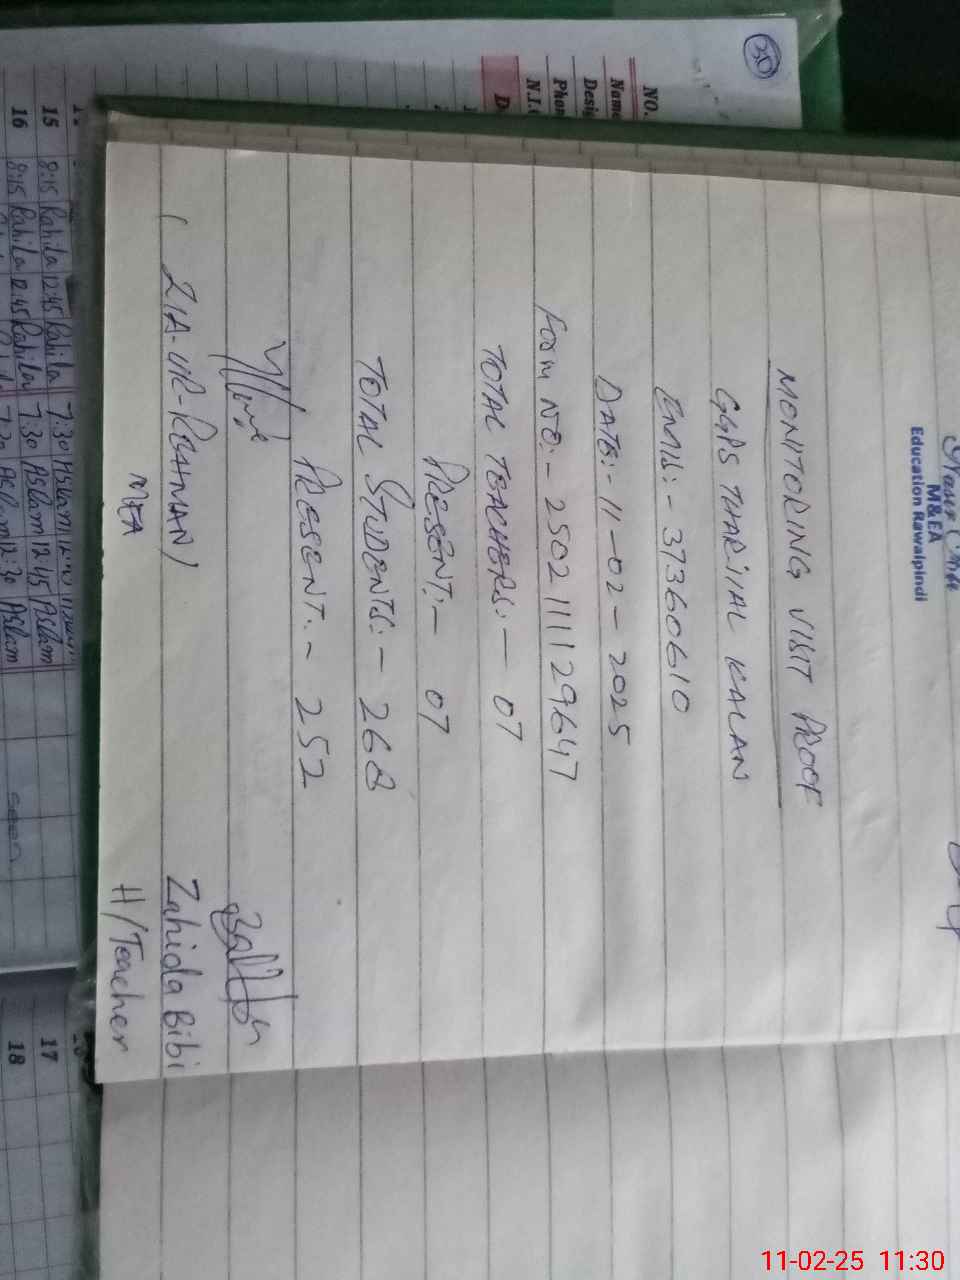 M&EA
Education Rawalpindi
MONITORING VISIT PROOF
GGPS THARJIAL KALAN
EMIS:- 37360610
DATE:- 11-02-2025
Form NO:- 250211129647
TOTAL TEACHERS:- 07
PRESENT:- 07
TOTAL STUDENTS:- 268
PRESENT:- 252
(ZIA-UR-REHMAN)
MEA
Zahida Bibi
H/Teacher
30
NO.
Name
Desig
Phon
N.I.
D
15 8:15 Rahila 12:45 Rahila 7:30 Aslam 12:45 Aslam
16 8:15 Rahila 12:45 Rahila 7:30 Aslam 12:30 Aslam
17
18
seen
11-02-25 11:30